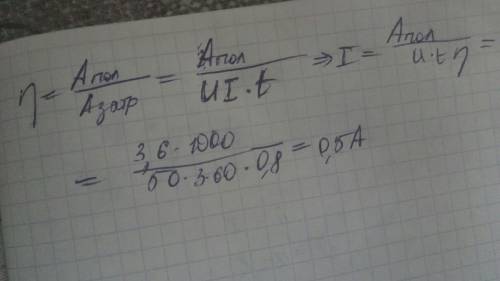 η = Aпол/Aзатр = Aпол/UI·t ⇒ I = Aпол/U·t·η =
= 3,6·1000/50·3·60·0,8 = 0,5A